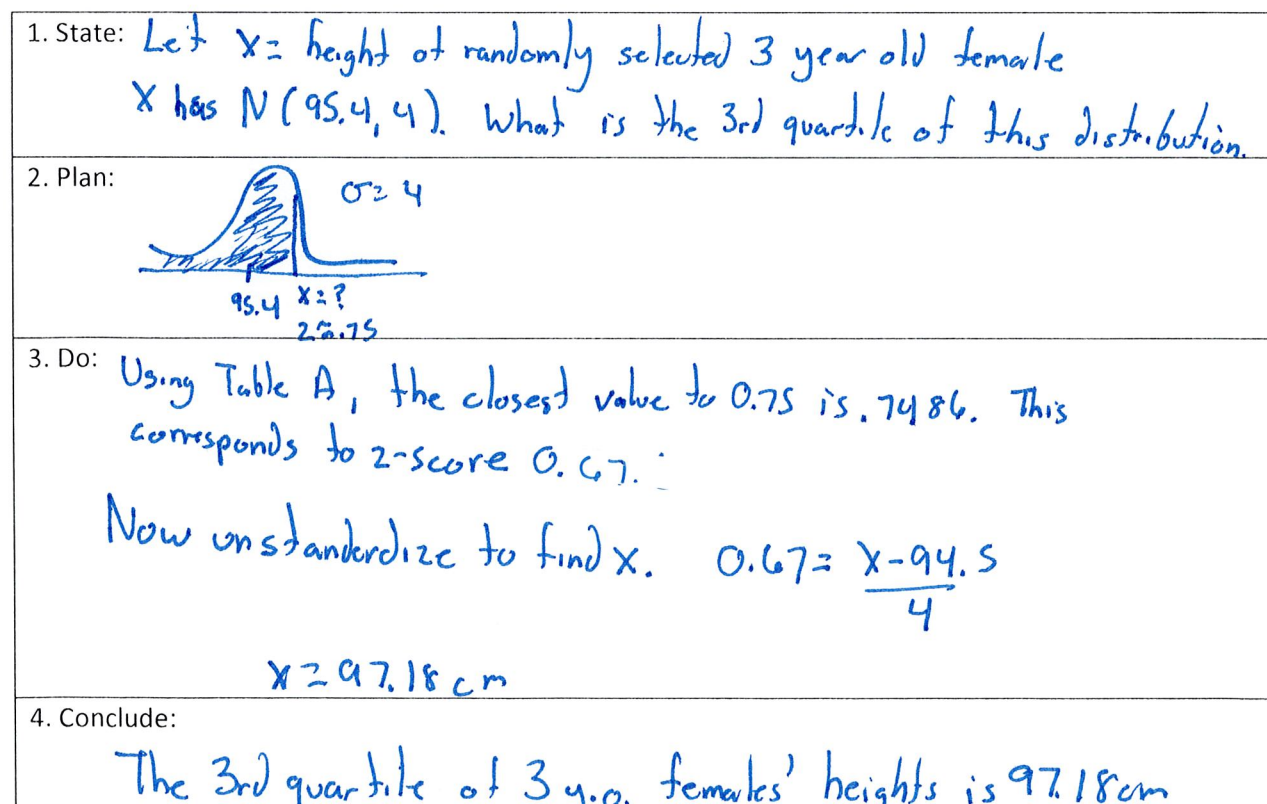 1. State: Let X = height of randomly selected 3 year old female
X has N(95.4, 4). What is the 3rd quartile of this distribution.
2. Plan:
σ = 4
95.4 X = ?
z≈.75
3. Do: Using Table A, the closest value to 0.75 is .7486. This
corresponds to z-score 0.67.
Now unstanderdize to find X. 0.67 = X - 94.5
4
X = 97.18 cm
4. Conclude:
The 3rd quartile of 3 y.o. females' heights is 97.18cm